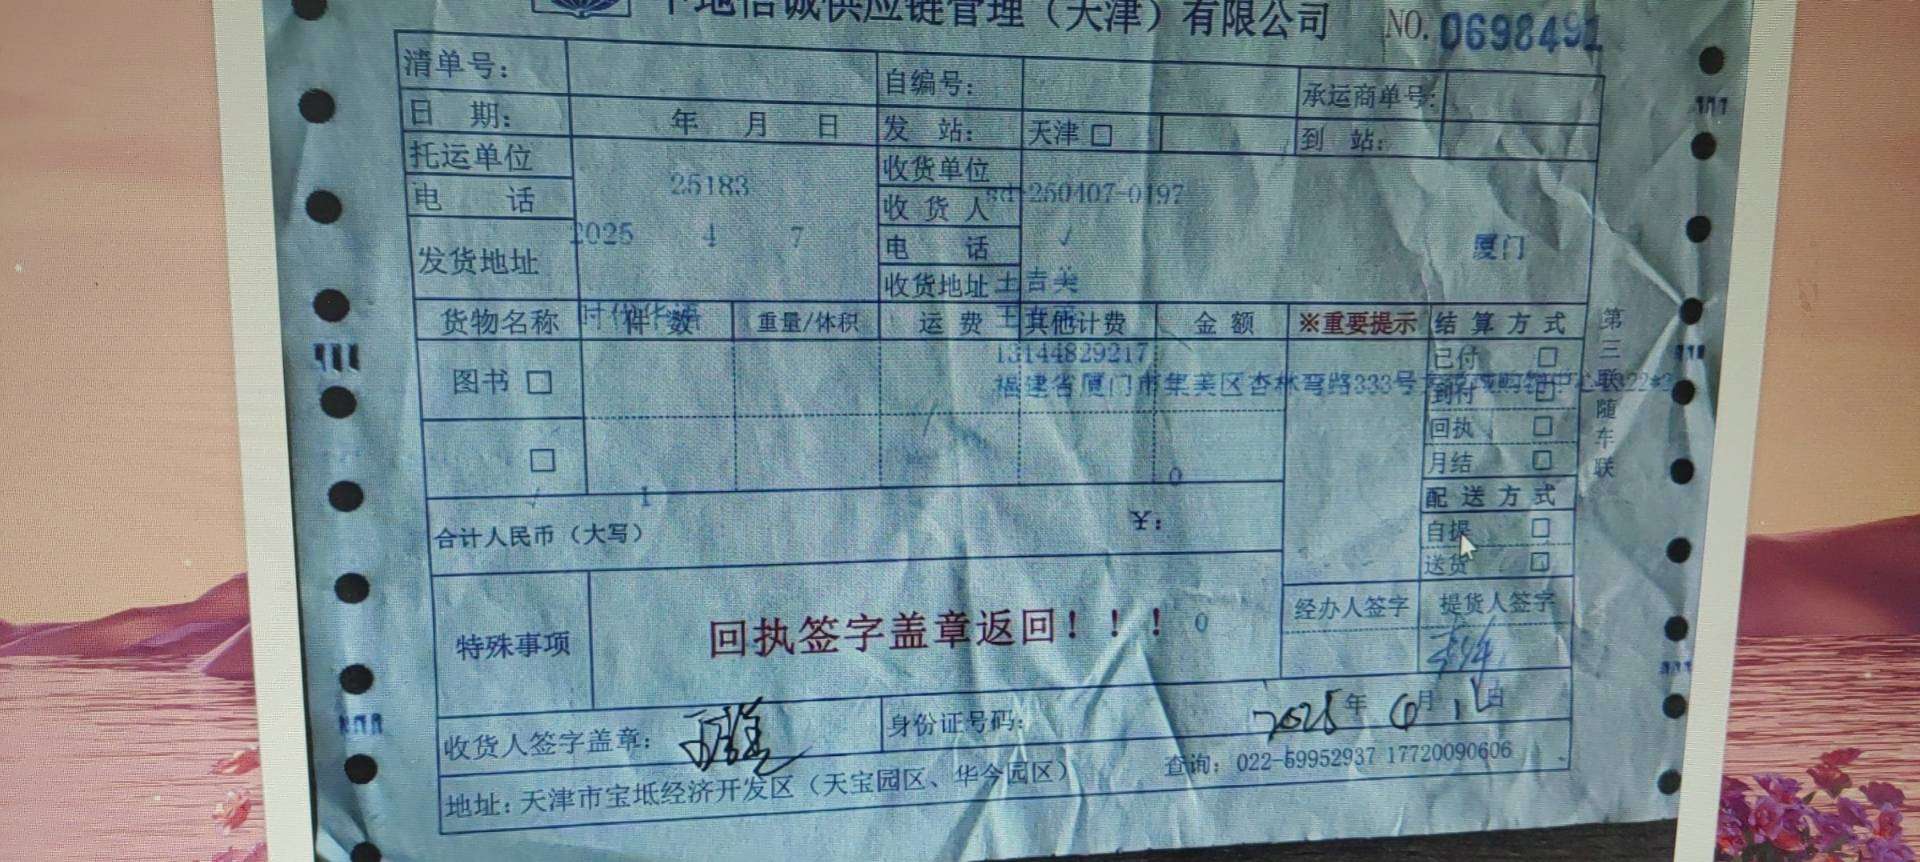 地信诚供应链管理（天津）有限公司 NO. 0698491
清单号： 自编号： 承运商单号：
日 期： 年 月 日 发 站： 天津 □ 到 站：
托运单位 收货单位
25183 250407-0197
电 话 收 货 人
2025 4 7 电 话 √ 厦门
发货地址
收货地址 吉美
货物名称 件 数 重量/体积 运 费 其他计费 金 额 ※重要提示 结 算 方 式
13144829217 已付 □
图书 □ 福建省厦门市集美区杏林弯路333号
到付 □
回执 □
□ 月结 □
0
√ 1 配 送 方 式
合计人民币（大写） ￥：
自提 □
送货 □
经办人签字 提货人签字
特殊事项 回执签字盖章返回！！！ 0
收货人签字盖章： 身份证号码： 2025年6月 日
地址：天津市宝坻经济开发区（天宝园区、华今园区） 查询：022-59952937 17720090606
第三联随车联